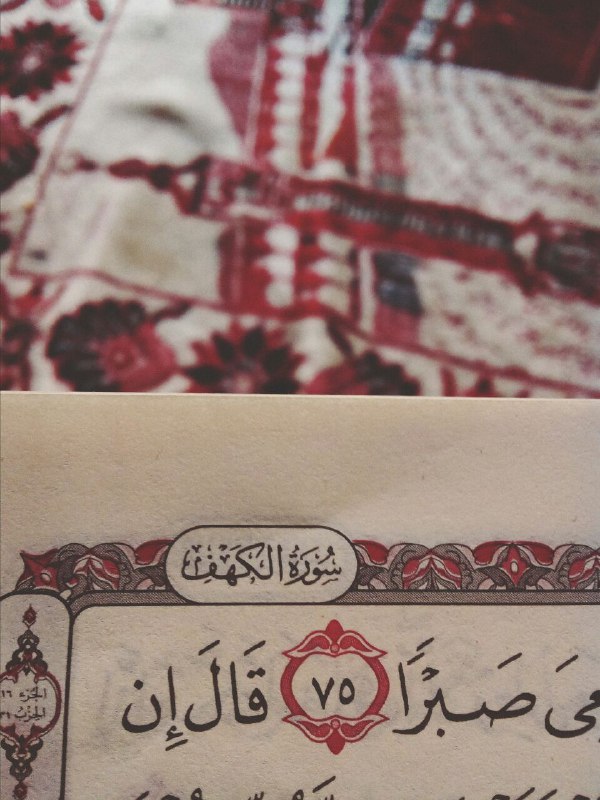 سُورَةُ الكَهْفِ
مَعِىَ صَبْرًا ٧٥ قَالَ إِن
الجزء ١٦
الحزب ٣١